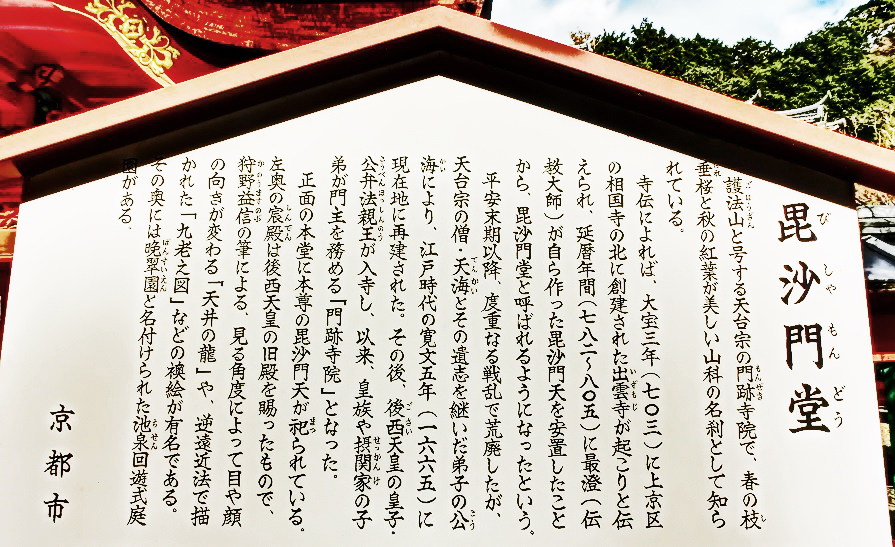 毘沙門堂
護法山と号する天台宗の門跡寺院で、春の枝
垂桜と秋の紅葉が美しい山科の名刹として知ら
れている。
寺伝によれば、大宝三年（七〇三）に上京区
の相国寺の北に創建された出雲寺が起こりと伝
えられ、延暦年間（七八二〜八〇五）に最澄（伝
教大師）が自ら作った毘沙門天を安置したこと
から、毘沙門堂と呼ばれるようになったという。
平安末期以降、度重なる戦乱で荒廃したが、
天台宗の僧・天海とその遺志を継いだ弟子の公
海により、江戸時代の寛文五年（一六六五）に
現在地に再建された。その後、後西天皇の皇子・
公弁法親王が入寺し、以来、皇族や摂関家の子
弟が門主を務める「門跡寺院」となった。
正面の本堂に本尊の毘沙門天が祀られている。
左奥の宸殿は後西天皇の旧殿を賜ったもので、
狩野益信の筆による、見る角度によって目や顔
の向きが変わる「天井の龍」や、逆遠近法で描
かれた「九老之図」などの襖絵が有名である。
その奥には晩翠園と名付けられた池泉回遊式庭
園がある。
京都市